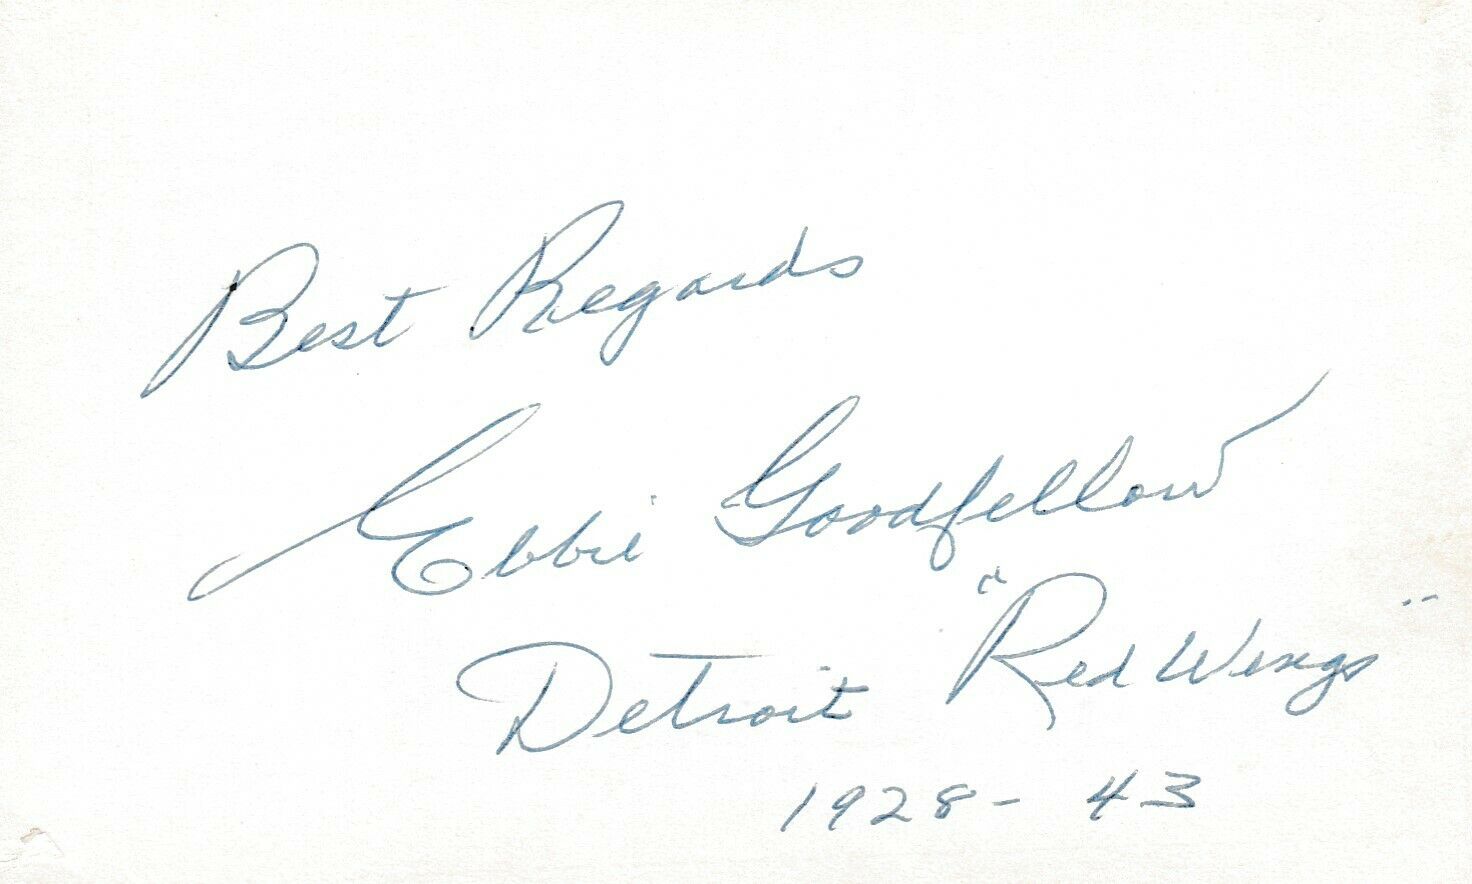 Best Regards
Ebbie Goodfellow
Detroit "Red Wings"
1928 - 43